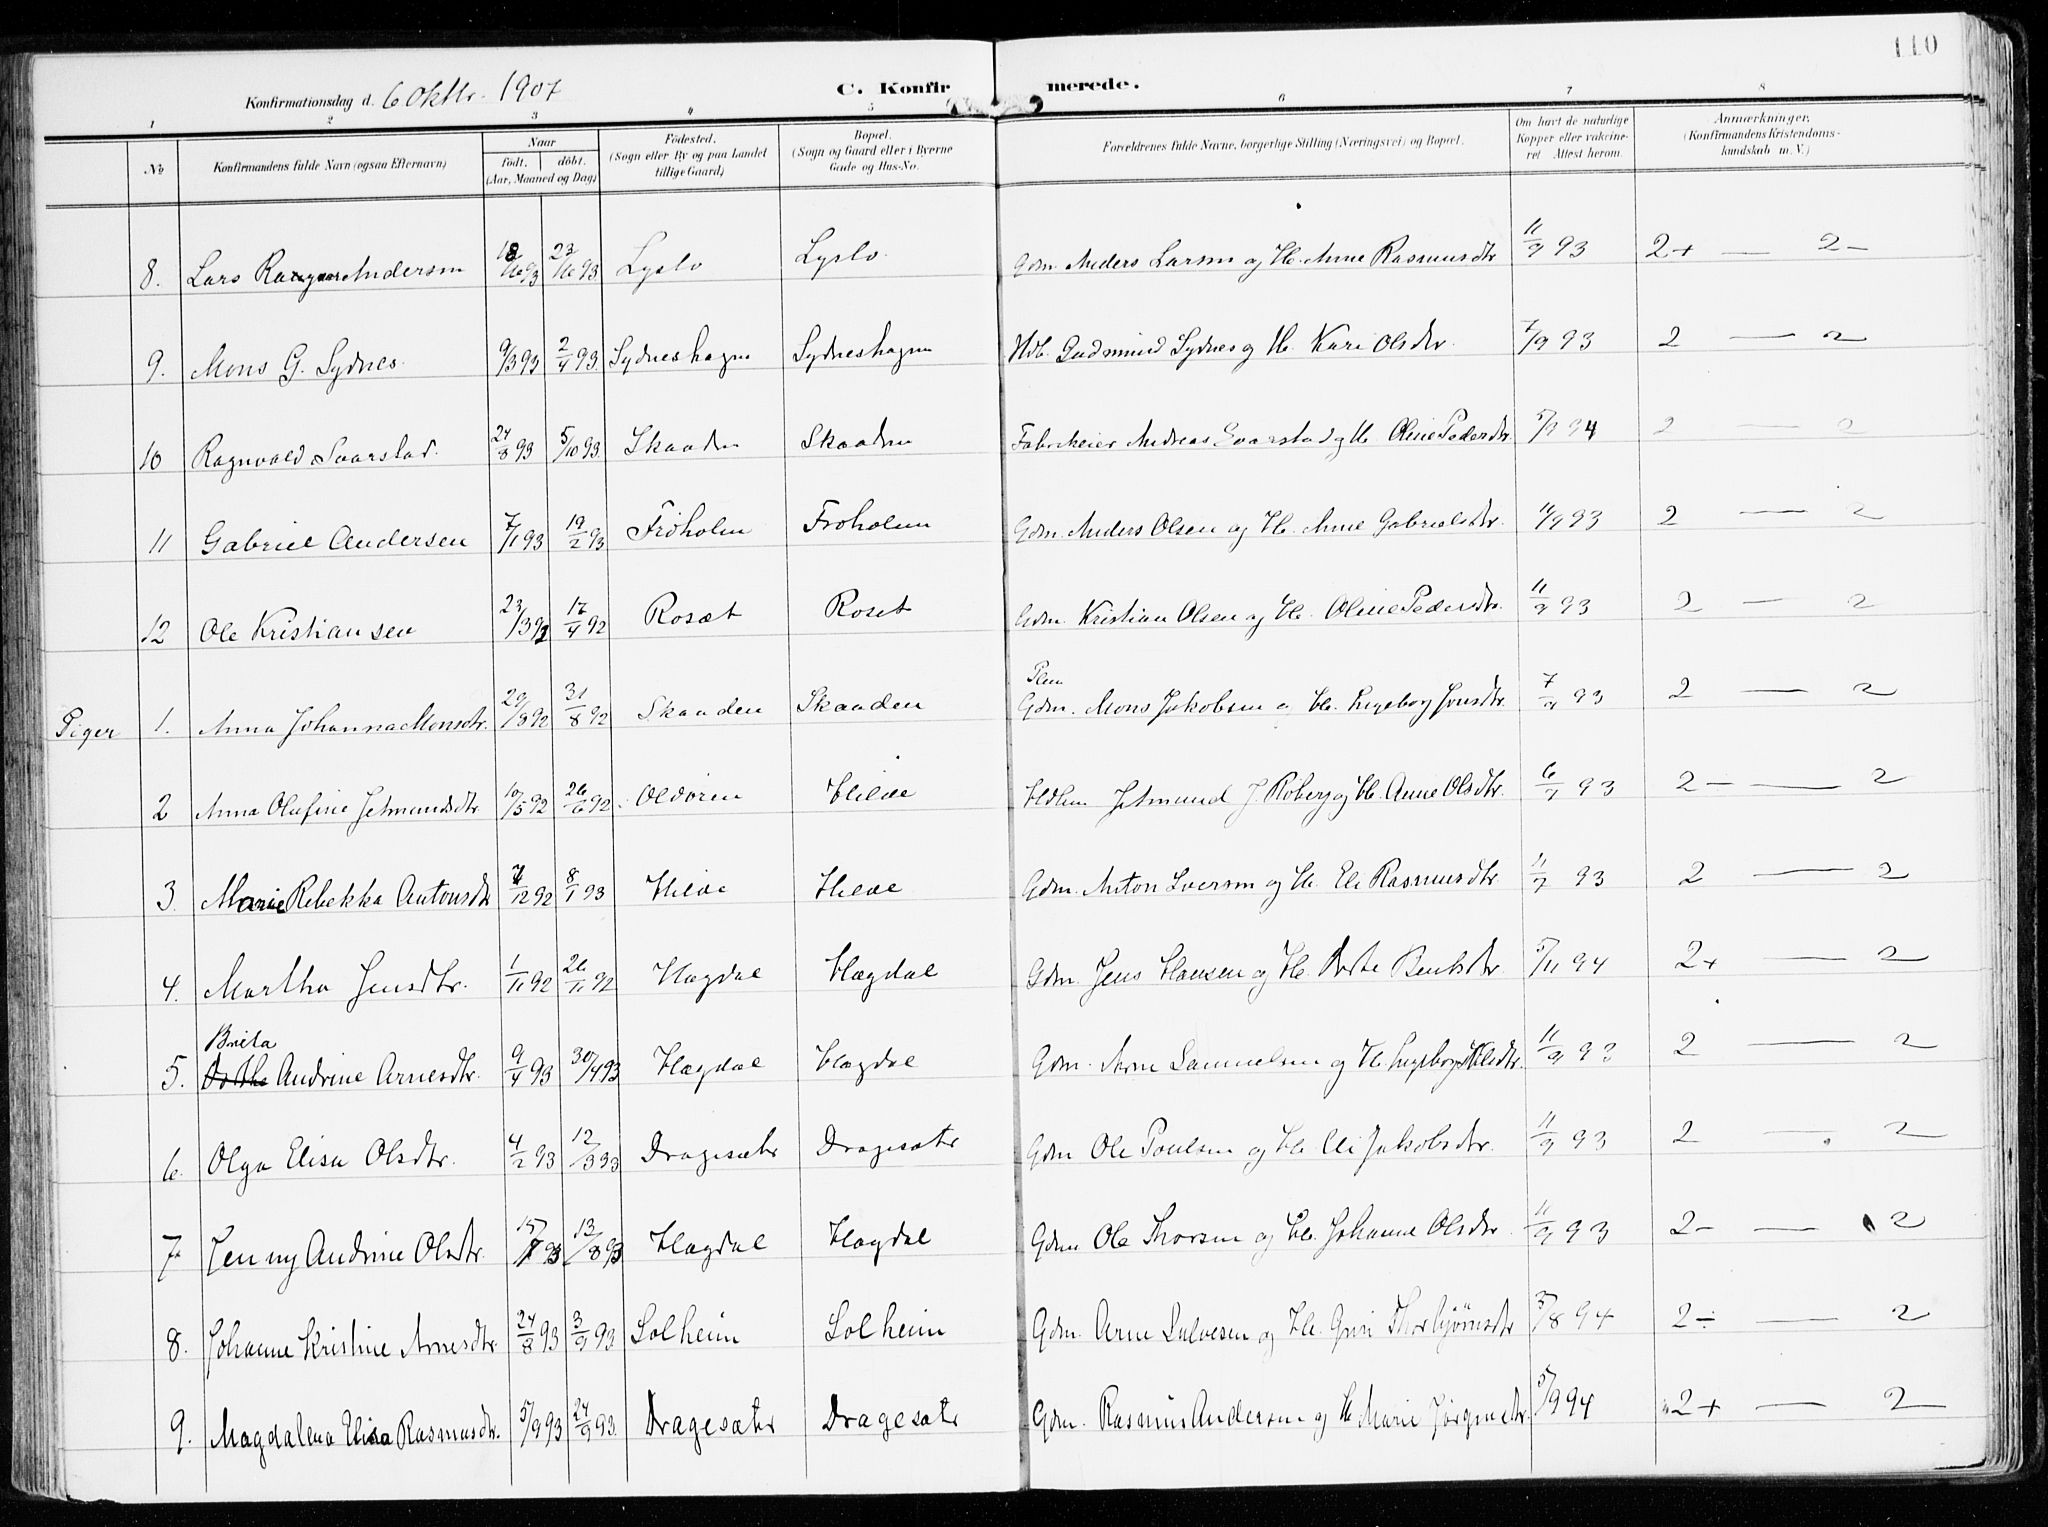 110
Konfirmationsdag d. 6 Oktbr. 1907 C. Konfirmerede.
1 2 3 4 5 6 7 8
No Konfirmandens fulde Navn (ogsaa Efternavn) Naar födt. döbt. (Aar, Maaned og Dag) Födested. (Sogn eller By og paa Landet tillige Gaard) Bopæl. (Sogn og Gaard eller i Byerne Gade og Hus-No. Forældrenes fulde Navne, borgerlige Stilling (Næringsvei) og Bopæl. Om havt de naturlige Kopper eller vakcineret. Attest herom. Anmærkninger. (Konfirmandens Kristendomskundskab m. V.)
8. Lars Andersen 18/10 93 23/10 93 Lyslo Lyslo Gdm. Anders Larsen og H. Anne Rasmusdtr 11/9 93 2+ — 2-
9. Mons G. Sydnes. 9/3 93 2/4 93. Sydneshagen Sydneshagen Hdb. Gudmund Sydnes og H. Kari Olsdtr. 7/9 93 2 — 2
10 Ragnvald Svarstad. 24/8 93 5/10 93. Skaaden Skaaden Fabrikeier Andreas Svarstad og H. Oline Pedersdtr. 5/9 94 2 — 2
11 Gabriel Andersen 7/1 93 19/2 93 Fröholm Froholm Gdm. Anders Olsen og H. Anne Gabrielsdtr. 11/9 93 2 — 2
12 Ole Kristiansen 23/3 92 17/4 92 Rosæt Roset Gdm. Kristian Olsen og H. Oline Pedersdtr. 11/9 93 2 — 2
Piger 1. Anna Johanna Monsdtr. 29/8 92 31/8 92 Skaaden Skaaden Gdm. Mons Jakobsen og H. Ingeborg Jonsdtr. 7/9 93 2 — 2
2 Anna Olufine Jetmundsdtr 10/5 92 26/6 92 Oldören Hilde Jetmund J. Roberg og H. Anne Olsdtr. 6/9 93 2- — 2
3. Marie Rebekka Antonsdtr 12 92 8/1 93 Hilde Hilde Gdm. Anton Iversen og H. Eli Rasmusdtr 11/9 93 2 — 2
4. Martha Jensdtr. 1/11 92 26/11 92 Hagdal Hægdal Gdm. Jens Hansen og H. Berte Bentsdtr 5/11 94 2+ — 2
Brita
5. Andrine Arnesdtr. 9/4 93 30/4 93 Hægdal Hagdal Gdm. Arne Samuelsen og H. Ingeborg 11/9 93 2 — 2
6. Olga Elisa Olsdtr. 4/2 93 12/3 93 Dragesæter Dragesæter Gdm Ole Poulsen og H. Eli Jakobsdtr. 11/9 93 2 — 2
7 Jenny Andrine Olsdtr. 15/7 93 13/8 93 Hægdal Hagdal Gdm Ole Thorsen og H. Johanne Olsdtr. 11/9 93 2- — 2
8. Johanne Kristine Arnesdtr. 24/8 93 3/9 93. Solheim Solheim Gdm. Arne Salvesen og H. Guri Thorbjörnsdtr 3/8 94 2÷ — 2
9. Magdalena Elisa Rasmusdtr. 5/9 93 24/9 93. Dragesæter Dragesæter Gdm. Rasmus Andersen og H. Marie Jörgensdtr. 5/9 94 2+ — 2